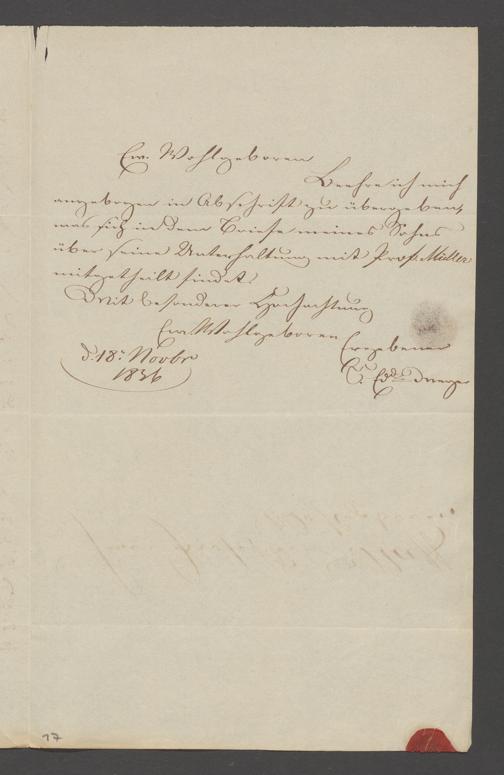 Ew. Wohlgeboren
Beehre ich mich
angebogen in Abschrift zu übergeben,
was sich in dem Briefe meines Sohns
über seine Unterhaltung mit Prof. Müller
mitgetheilt findet.
Mit besonderer Hochachtung
Ew. Wohlgeboren
Ergebener
d. 18. Novbr
1836
17